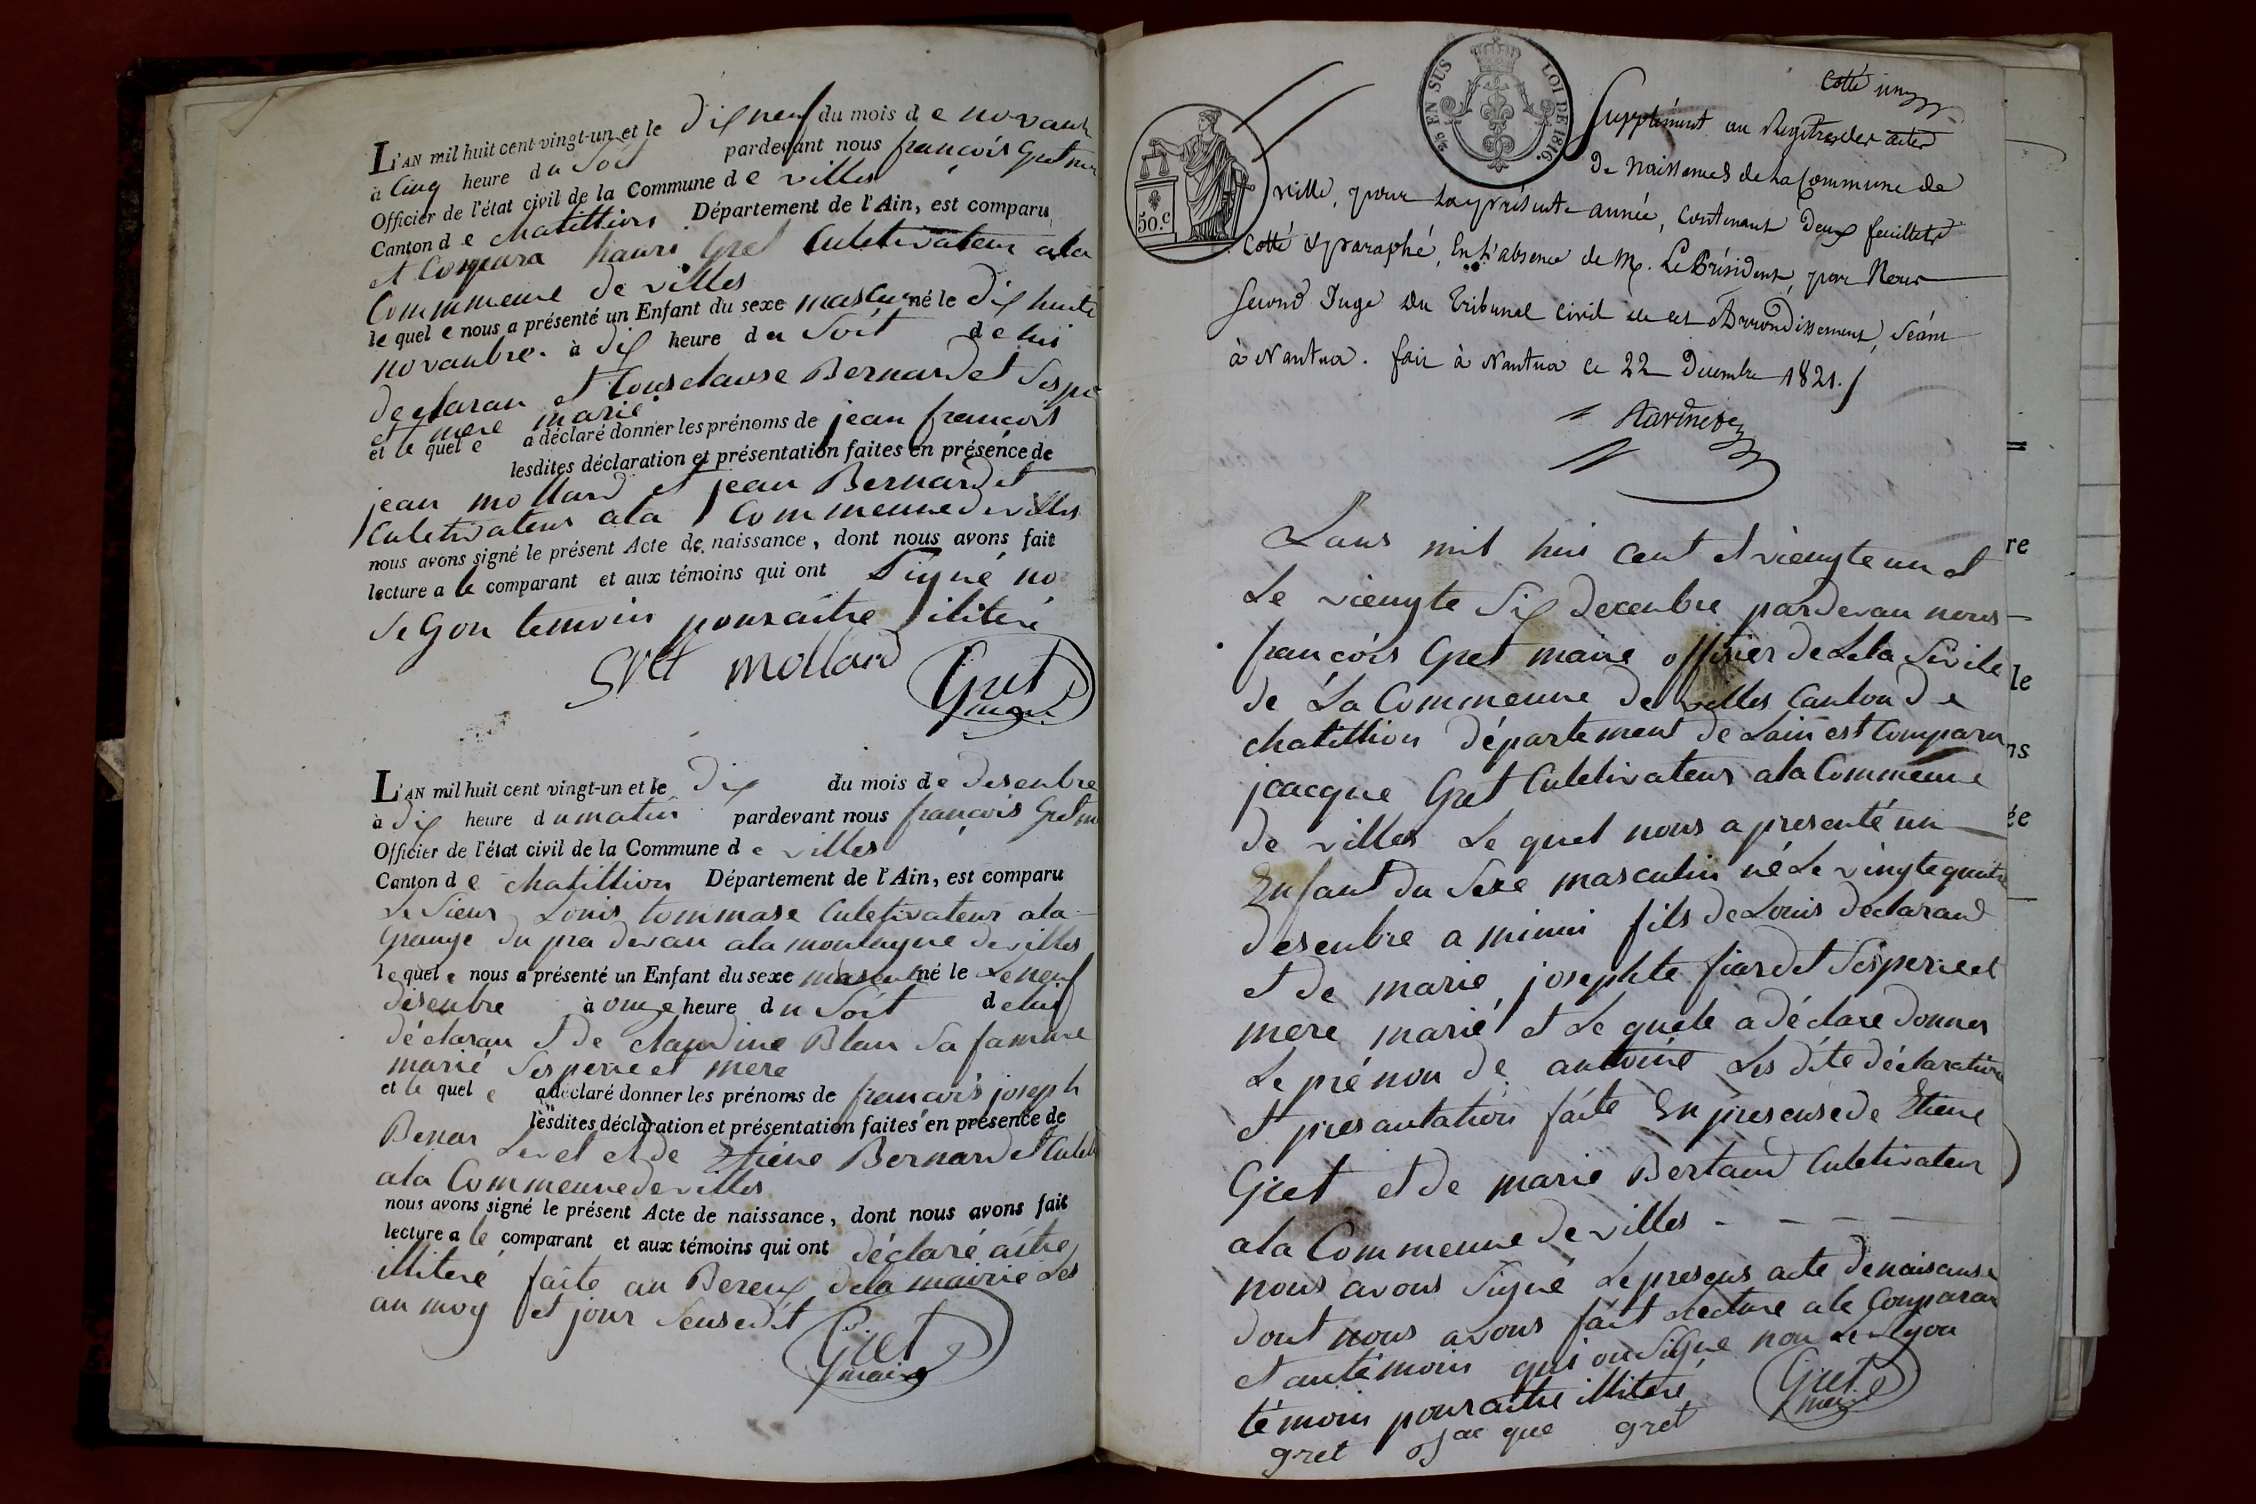 L'AN mil huit cent vingt-un et le dix neuf du mois de novanb
à Cinq heure du Soit pardevant nous françois Gret
Officier de l'état civil de la Commune de villes
Canton de chatillion Département de l'Ain, est comparu
et Compara hanri Gret Culetivateur ala
Commeune de villes
le quel e nous a présenté un Enfant du sexe mascu né le dix huite
novanbre. à dix heure du Soit de lui
declaran et Bernardet
et mere marié
et le quel e a déclaré donner les prénoms de jean françois
lesdites déclaration et présentation faites en présence de
jean mollard et jean Bernardet
Culetivateur ala Commeune de villes
nous avons signé le présent Acte de naissance, dont nous avons fait
lecture a le comparant et aux témoins qui ont Signé no
se Gon temoin pour aitre iliteré
Gret mollard Gret
maire
L'AN mil huit cent vingt-un et le Dix du mois de desenbre
à dix heure du matin pardevant nous françois Gret m
Officier de l'état civil de la Commune de villes
Canton de chatillion Département de l'Ain, est comparu
Le Sieur Louis tommase Culetivateur ala
Grange du pra devan ala montagne de villes
lequel e nous a présenté un Enfant du sexe mascul né le Le neuf
desenbre à onze heure du Soit de lui
déclaran et de claudine Blan Sa famme
marié Ses perre et mere
et le quel e a déclaré donner les prénoms de françois joseph
lesdites déclaration et présentation faites en présence de
Benoi et de Etiene Bernardet Culeti
ala Commeune de villes
nous avons signé le présent Acte de naissance, dont nous avons fait
lecture a le comparant et aux témoins qui ont déclaré aitre
illiteré faite au Bereux dela mairie Les
an moy et jour Seusedit
Gret
maire
Cotté un
25 EN SUS LOI DE 1816.
50.C
Supplément au Registre des actes
de Naissances de la Commune de
ville, pour la présente année, Contenant deux feuillets
Cotté & paraphé, En l'absence de M. Le Président, par Nous
second Juge du Tribunal Civil de cet Arrondissement, Séant
à Nantua. fait à Nantua ce 22 Decembre 1821.
Lans mil hui cent et viengte un et
Le viengte Six decenbre pardevan nous
françois Gret maire offisier de Léta Sivile
de La Commeune de villes Canton de
chatillion département de Lain est Comparu
jeacque Gret Culetivateur ala Commeune
de villes Le quel nous a presenté un
Enfant du Sexe masculin né Le vingte quatre
desenbre a minui fils de Louis déclarand
et de marie josephte fiardet Ses perre et
mere marié et Le quele a déclaré donner
Le prénon de antoine Les dite déclaration
et presantation faite En presense de Etiene
Gret et de marie Bertand Culetivateur
ala Commeune de villes
nous avons Signé Le presens acte de naisanse
dont nous avons fait Lecture a le Conparan
et au témoin qui on Signe non Le Segon
témoin pour aitre illiteré
Gret
maire
gret jac que gret
re
le
ns
ée